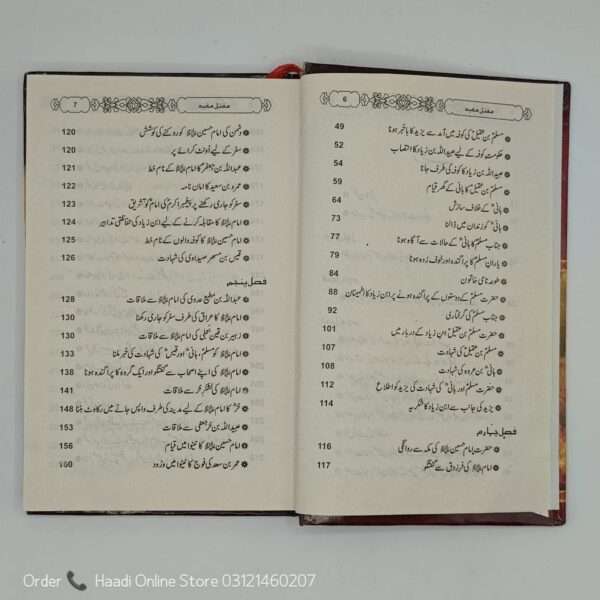 مقتل مفید
6
مسلمؑ بن عقیلؑ کی کوفہ میں آمد سے یزید کا باخبر ہونا 49
حکومت کوفہ کے لیے عبیداللہ بن زیاد کا انتصاب 52
عبیداللہ بن زیاد کا کوفہ کی طرف جانا 54
مسلمؑ بن عقیلؑ کا ہانیؑ کے گھر قیام 59
ہانیؑ کے خلاف سازش 64
ہانیؑ کو زندان میں ڈالنا 73
جناب مسلمؑ کا ہانیؑ کے حالات سے آگاہ ہونا 77
یاران مسلمؑ کا پراگندہ اور خوف زدہ ہونا 79
طوعہ نامی خاتون 84
حضرت مسلمؑ کے دوستوں کے پراگندہ ہونے پر ابن زیاد کا اطمینان 88
جناب مسلمؑ کی گرفتاری 92
حضرت مسلمؑ بن عقیلؑ ابن زیاد کے دربار میں 101
مسلمؑ بن عقیلؑ کی شہادت 107
ہانیؑ بن عروہ کی شہادت 108
حضرت مسلمؑ اور ہانیؑ کی شہادت کی یزید کو اطلاع 112
یزید کی جانب سے ابن زیاد کا شکریہ 114
فصل چہارم
حضرت امام حسینؑ کی مکہ سے روانگی 116
امامؑ کی فرزدق سے گفتگو 117
مقتل مفید
7
دشمن کی امام حسینؑ کو روکنے کی کوشش 120
سفر کے لیے اونٹ کرائے پر 120
عبداللہ بن جعفرؑ کا امامؑ کے نام خط 121
عمرو بن سعید کا امان نامہ 122
سفر کو جاری رکھنے پر پیغمبر اکرمؐ کی امامؑ کو تشویق 123
امامؑ کا مقابلہ کرنے کے لیے ابن زیاد کی حفاظتی تدابیر 124
امام حسینؑ کا کوفہ والوں کے نام خط 125
قیس بن مسہر صیداوی کی شہادت 126
فصل پنجم
عبداللہ بن مطیع عدوی کی امامؑ سے ملاقات 128
امامؑ کا عراق کی طرف سفر کو جاری رکھنا 130
زہیر بن قین بجلی کی امامؑ سے ملاقات 130
امامؑ کو مسلمؑ، ہانیؑ اور قیسؑ کی شہادت کی خبر ملنا 133
امامؑ کی اپنے اصحاب سے گفتگو اور ایک گروہ کا پراگندہ ہونا 138
امامؑ کی لشکر حر سے ملاقات 141
حرؑ کا امامؑ کے لیے مدینہ کی طرف واپس جانے میں رکاوٹ بننا 148
عبیداللہ بن حر جعفی سے ملاقات 153
امام حسینؑ کا نینوا میں قیام 156
عمر بن سعد کی فوج کا نینوا میں ورود 160
Order Haadi Online Store 03121460207